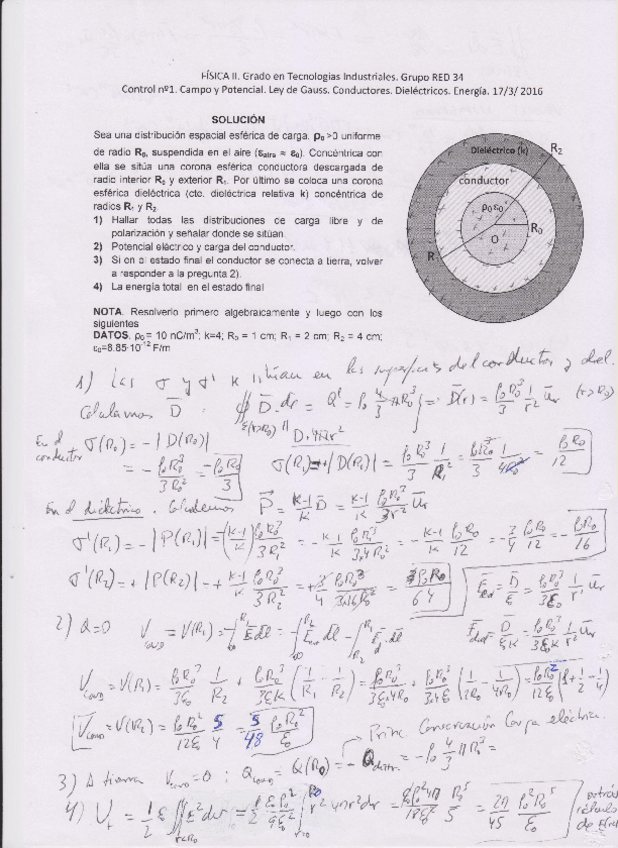 FÍSICA II. Grado en Tecnologías Industriales. Grupo RED 34
Control nº1. Campo y Potencial. Ley de Gauss. Conductores. Dieléctricos. Energía. 17/3/ 2016
SOLUCIÓN
Sea una distribución espacial esférica de carga, ρ₀ >0 uniforme
de radio R₀, suspendida en el aire (εₐᵢᵣₑ ≈ ε₀). Concéntrica con
ella se sitúa una corona esférica conductora descargada de
radio interior R₀ y exterior R₁. Por último se coloca una corona
esférica dieléctrica (cte. dieléctrica relativa k) concéntrica de
radios R₁ y R₂.
1) Hallar todas las distribuciones de carga libre y de
polarización y señalar donde se sitúan.
2) Potencial eléctrico y carga del conductor.
3) Si en el estado final el conductor se conecta a tierra, volver
a responder a la pregunta 2).
4) La energía total en el estado final
NOTA. Resolverlo primero algebraicamente y luego con los
siguientes
DATOS: ρ₀= 10 nC/m³; k=4; R₀ = 1 cm; R₁ = 2 cm; R₂ = 4 cm;
ε₀=8.85·10⁻¹² F/m
Dieléctrico (k)
R₂
conductor
ρ₀ε₀
R₀
O
R
1) las σ y σ' se sitúan en las superficies del conductor y diel.
Calculamos D̄ : ∯ D̄·dr = Q = ρ₀ 4/3 πR₀³ = D̄(r) = ρ₀R₀³/3 1/r² ūr (r>R₀)
D·4πr²
En el conductor σ(R₀) = -|D(R₀)|
= -ρ₀R₀³/3R₀² = -ρ₀R₀/3
σ(R₁) = +|D(R₁)| = ρ₀R₀³/3 1/R₁² = ρ₀R₀³/3 1/4R₀² = ρ₀R₀/12
En el dieléctrico. Calculemos P̄ = k-1/k D̄ = k-1/k ρ₀R₀³/3r² ūr
σ'(R₁) = -|P(R₁)| = -(k-1/k) ρ₀R₀³/3R₁² = -k-1/k ρ₀R₀³/3·4R₀² = -k-1/k ρ₀R₀/12 = -3/4 ρ₀R₀/12 = -ρ₀R₀/16
σ'(R₂) = +|P(R₂)| = +k-1/k ρ₀R₀³/3R₂² = +3/4 ρ₀R₀³/3·16R₀² = ρ₀R₀/64
2) Q=0 V = V(R₁) = -∫ Ēdl̄ = -∫ Ē dl̄ - ∫ Ē·dl̄
V = V(R₁) = ρ₀R₀³/3ε₀ 1/R₂ + ρ₀R₀³/3ε₀k (1/R₁ - 1/R₂) = ρ₀R₀³/3ε₀·4R₀ + ρ₀R₀³/3·4ε₀ (1/2R₀ - 1/4R₀) = ρ₀R₀²/12ε₀ (1+1/2-1/4)
V = V(R₁) = ρ₀R₀²/12ε₀ 5/4 = 5/48 ρ₀R₀²/ε₀
Princ. Conservación Carga eléctrica.
3) A tierra V=0 : Q = Q(R₀) = -Q = -ρ₀ 4/3 πR₀³ =